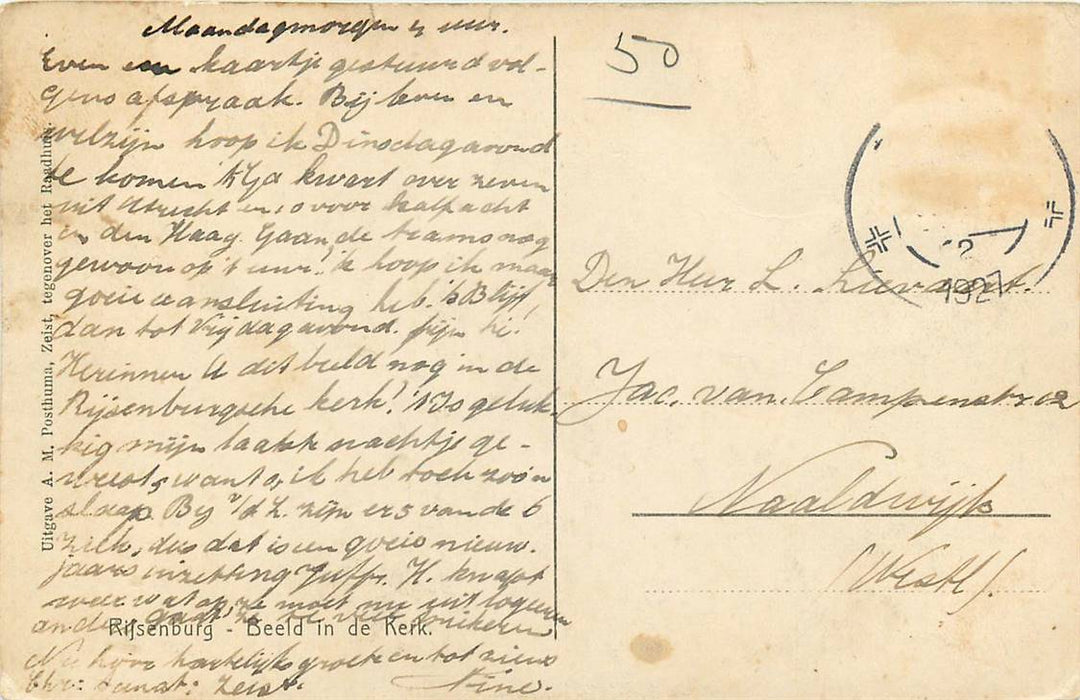 Maandagmorgen 4 uur.
Even een kaartje gestuurd vol-
gens afspraak. Bij leven en
welzijn hoop ik Dinsdagavond
te komen 'k Ga kwart over zeven
uit Utrecht en 10 voor half acht
in den Haag. Gaan de trams nog
gewoon op 't uur? 'k hoop ik maar
goeie aansluiting heb. 'k Blijf
dan tot Vrijdagavond. fijn hè!
Herinner U dit beeld nog in de
Rijsenburgsche kerk? 't Is geluk-
kig mijn laatste nachtje ge-
weest, want ik heb toch zoo'n
slaap. Bij v/d L. zijn er 5 van de 6
ziek, dus dat is een goeie nieuw-
jaars inzetting Juffr. H. knapt
weer wat op, ze moet nu uit logeeren
anders gaat ze
Nu hoor hartelijk groeten en tot ziens
Chr: Sanat: Zeist. Nine.
Rijsenburg - Beeld in de Kerk.
Uitgave A. M. Posthuma, Zeist, tegenover het Raadhuis.
50
1927
Den Heer L. Lievaart.
Jac. van Campenstr 62
Naaldwijk
(Westl).